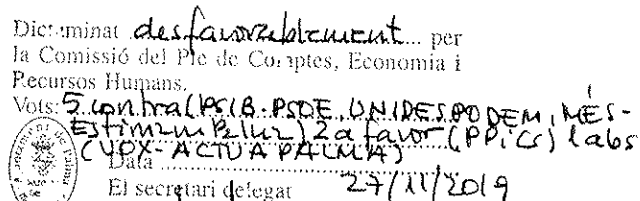 Dictaminat desfavorablement per
la Comissió del Ple de Comptes, Economia i
Recursos Humans.
Vots: 5 contra (PSIB-PSOE, UNIDES PODEM, MÉS-
Estimam Palma) 2 a favor (PP i Cs) 1 abs
(VOX-ACTUA PALMA)
Data
El secretari delegat 27/11/2019